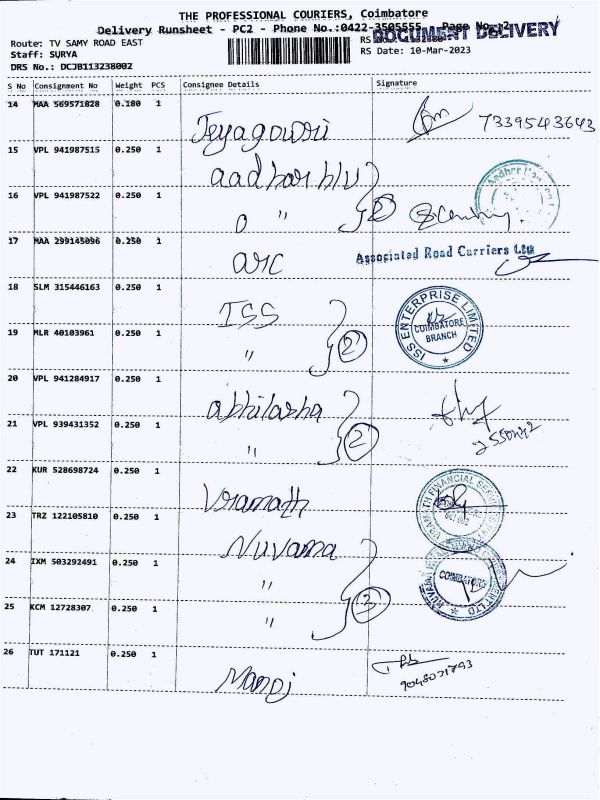 THE PROFESSIONAL COURIERS, Coimbatore
Delivery Runsheet - PC2 - Phone No.:0422-3505555 Page No.:2
DOCUMENT DELIVERY
Route: TV SAMY ROAD EAST
Staff: SURYA
RS Date: 10-Mar-2023
DRS No.: DCJB113238002
S No Consignment No Weight PCS Consignee Details Signature
14 MAA 569571828 0.180 1
Jeyagowri
7339543643
15 VPL 941987515 0.250 1
aadhar hlv
16 VPL 941987522 0.250 1
" 2
17 MAA 299145096 0.250 1
arc
Associated Road Carriers Ltd
18 SLM 315446163 0.250 1
ISS
ISS ENTERPRISE LIMITED
COIMBATORE
BRANCH
19 MLR 40103961 0.250 1
" 2
20 VPL 941284917 0.250 1
abhilasha
21 VPL 939431352 0.250 1
" 2
22 KUR 528698724 0.250 1
Vramath
23 TRZ 122105810 0.250 1
Nuvama
24 IXM 503292491 0.250 1
"
COIMBATORE
25 KCM 12728307 0.250 1
" 3
26 TUT 171121 0.250 1
Manoj
9048071793